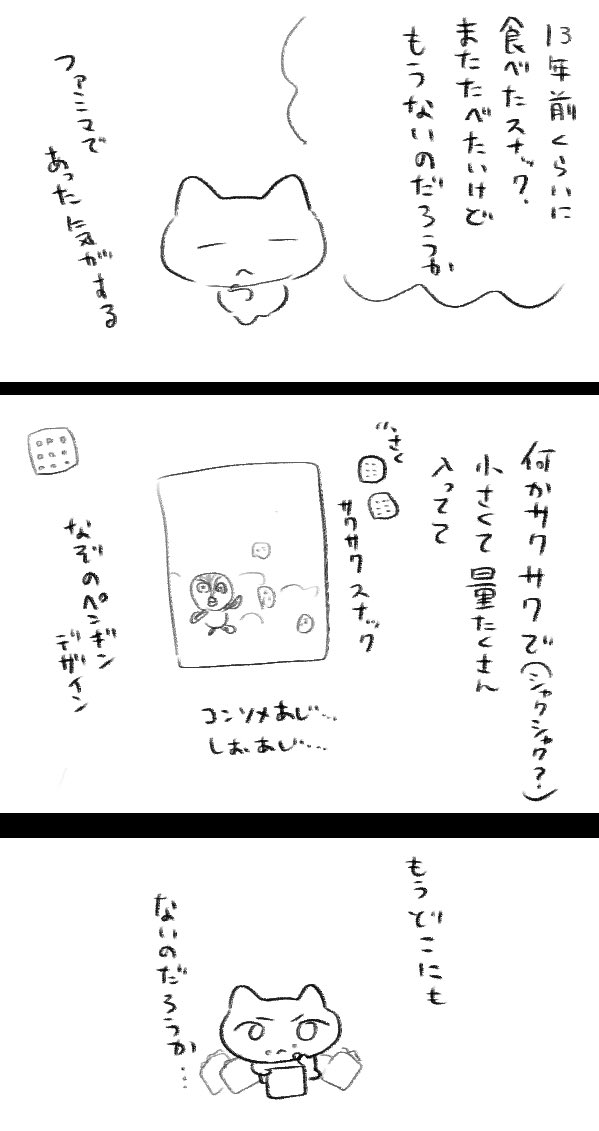 13年前くらいに
食べたスナック。
またたべたいけど
もうないのだろうか
ファミマで
あった気がする
何かサクサクで(シャクシャク?)
小さくて量たくさん
入ってて
さく
サクサクスナック
コンソメあじ…
しおあじ…
なぞのペンギン
デザイン
もうどこにも
ないのだろうか…